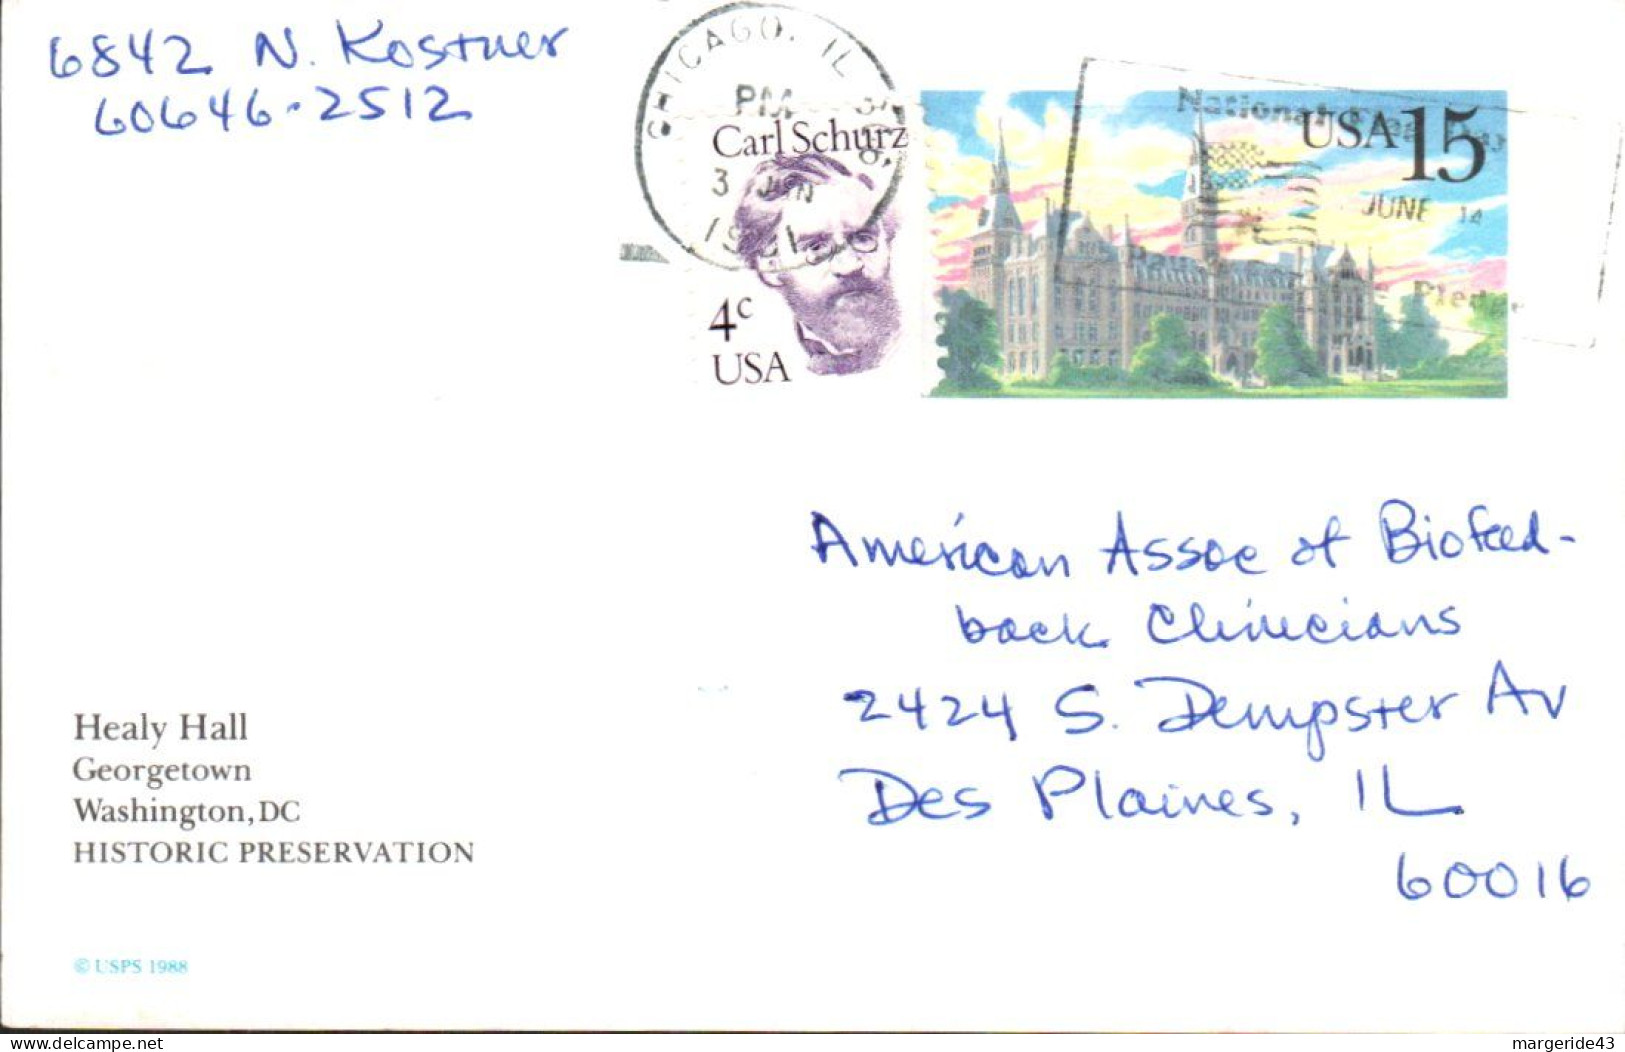 6842 N. Kostner
60646-2512
CHICAGO, IL 606
PM
3 JUN
1991
Carl Schurz
4c
USA
USA 15
National Flag Day
JUNE 14
Pledge
American Assoc of Biofeed-
back Clinicians
2424 S. Dempster Av
Des Plaines, IL
60016
Healy Hall
Georgetown
Washington, DC
HISTORIC PRESERVATION
© USPS 1988
www.delcampe.net
margeride43